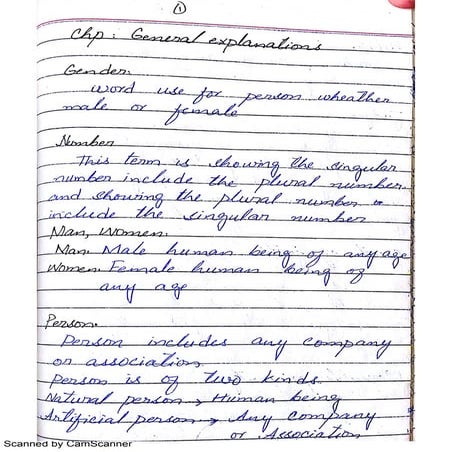 1
Chp: General explanations
Gender:
word use for person wheather
male or female
Number
This term is showing the singular
number include the plural number
and showing the plural number
include the singular number
Man, Women:
Man: Male human being of any age
Women: Female human being of
any age
Person:
Person includes any company
or association
Person is of two kinds.
Natural person → Human being
Artificial person → Any company
or Association
Scanned by CamScanner